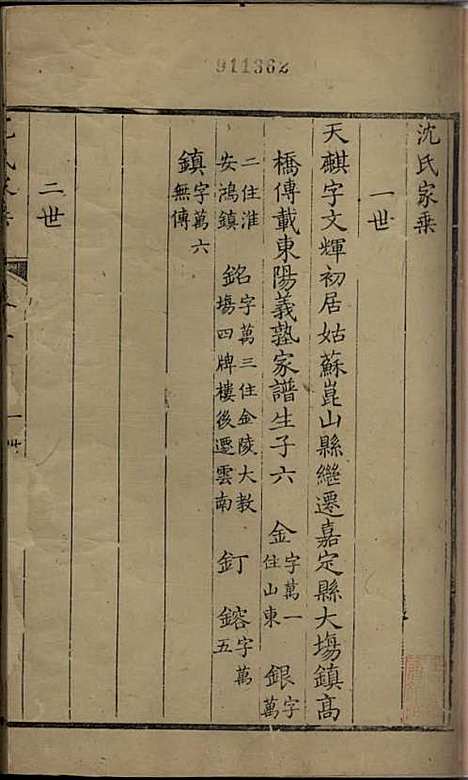 911362
沈氏家乘
一世
天麒字文輝初居姑蘇崑山縣繼遷嘉定縣大塲鎮高
橋傳載東陽義塾家譜生子六 金 字萬一 住山東 銀 字萬
二住淮安鴻鎮 銘 字萬三住金陵大教塲四牌樓後遷雲南 釘 鎔 字萬五
鎮 字萬六 無傳
二世